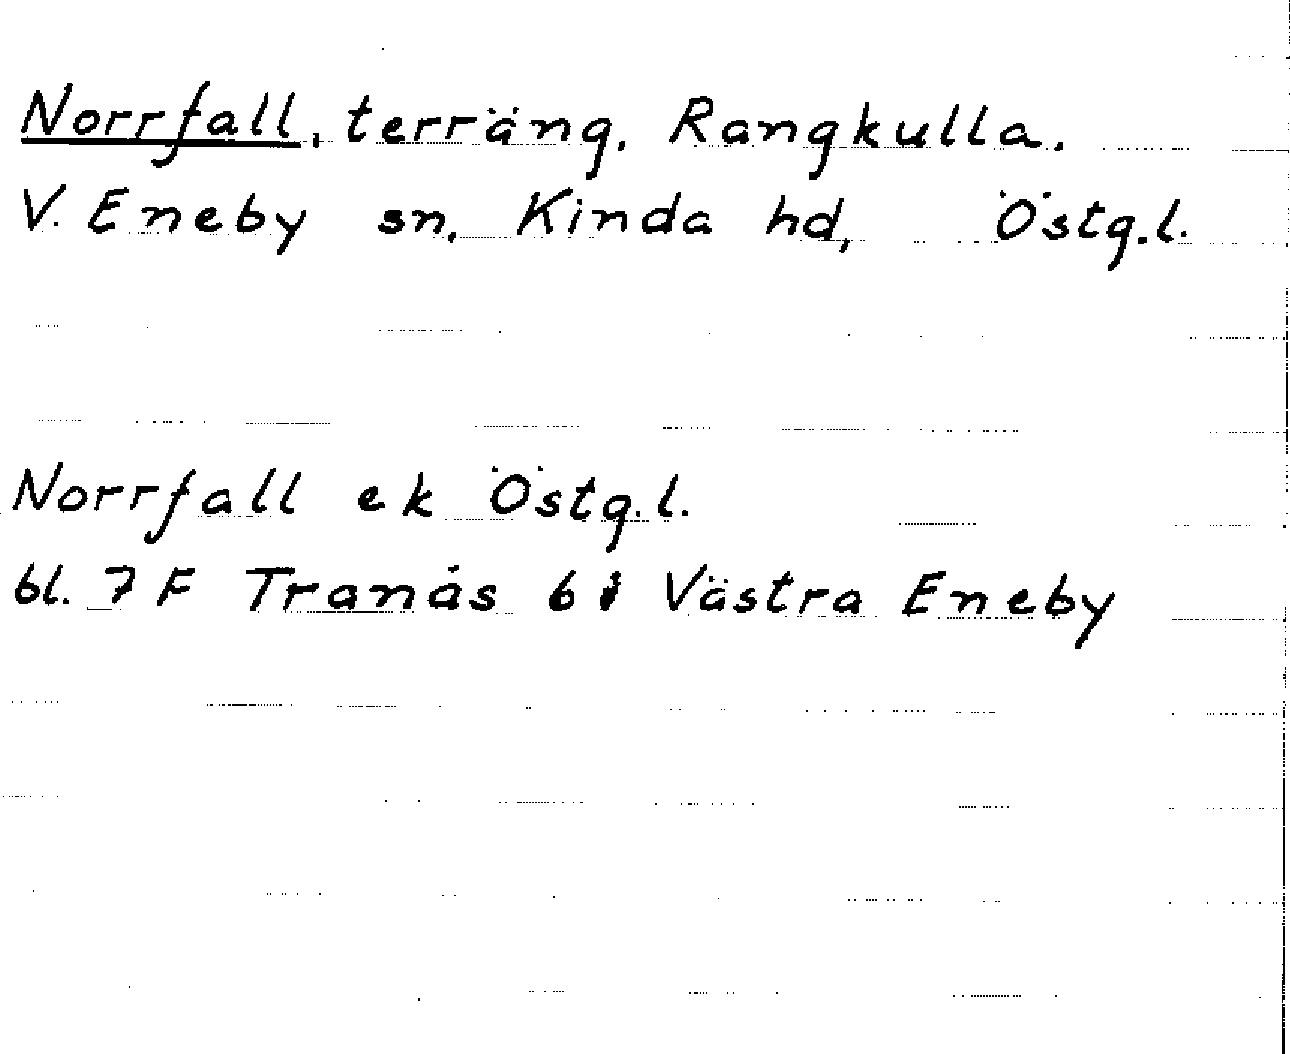 Norrfall, terräng, Rangkulla.
V. Eneby sn, Kinda hd, Östg.l.
Norrfall ek Östg.l.
bl. 7 F Tranås 6 i Västra Eneby